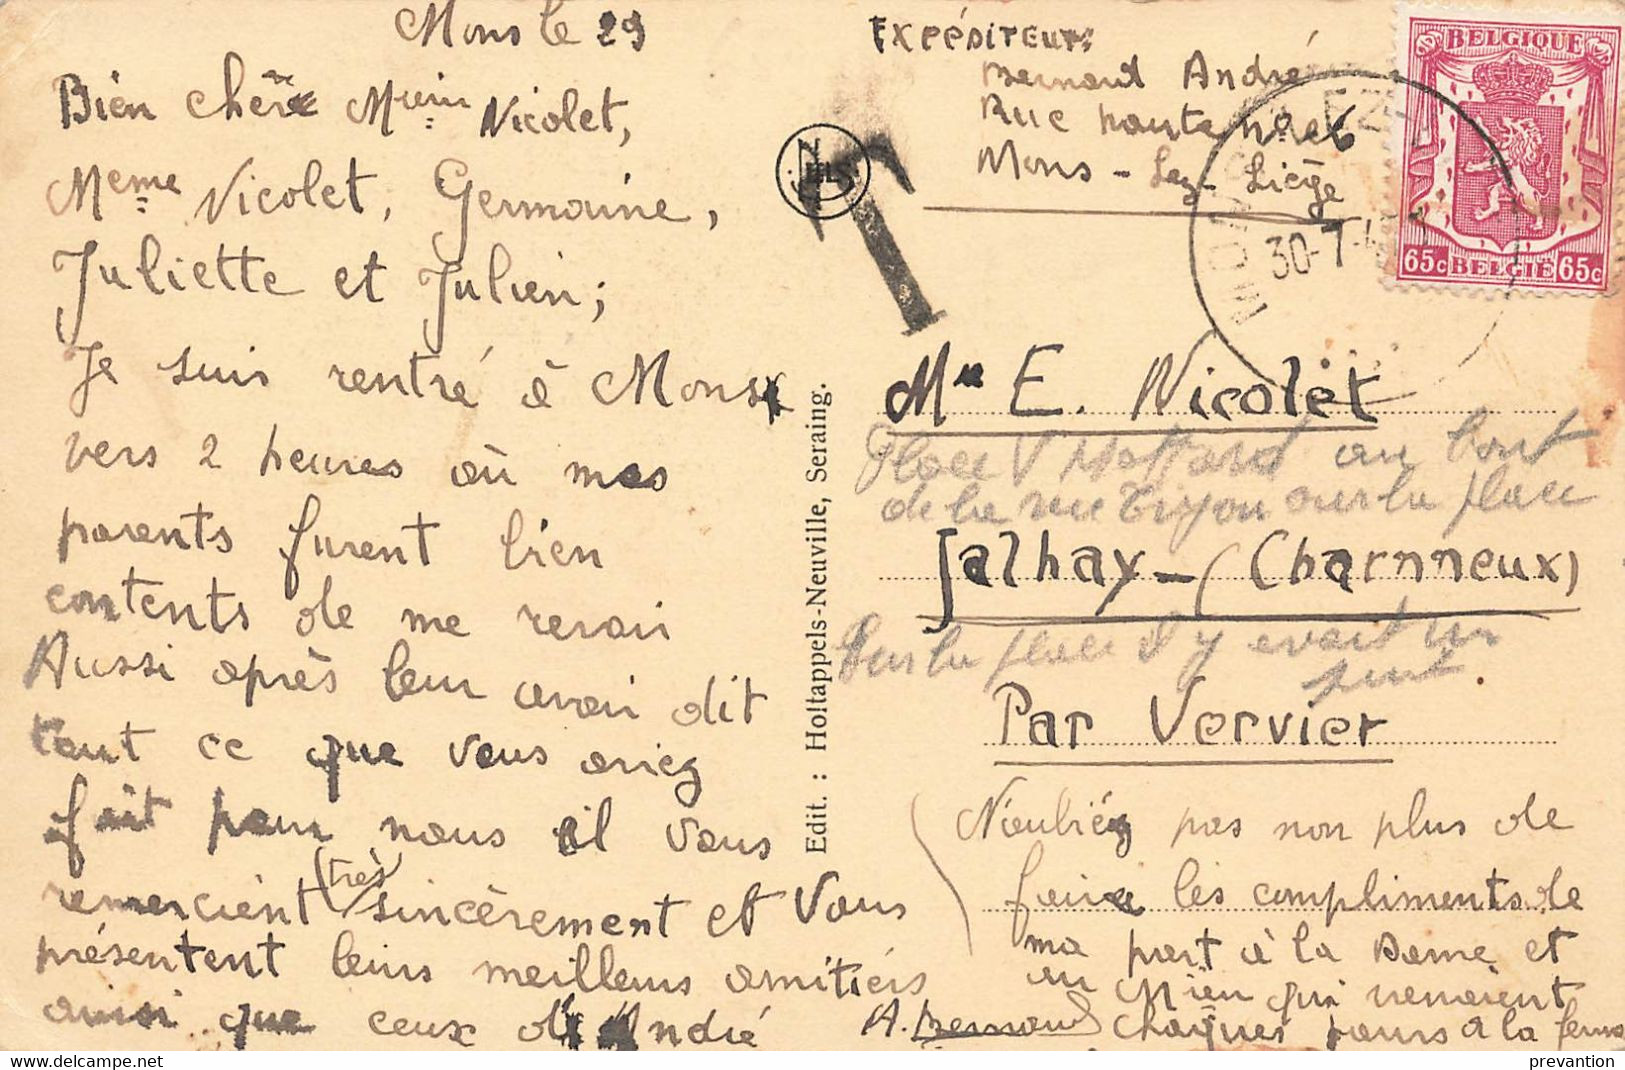 Mons le 29
Bien chère Msieur Nicolet,
Meme Nicolet, Germaine,
Juliette et Julien;
Je suis rentré à Mons
vers 2 heures où mes
parents furent bien
contents de me revoir
Aussi après leur avoir dit
tout ce que vous aviez
fait pour nous il vous
remercient (très) sincèrement et vous
présentent leurs meilleurs amitiés
ainsi que ceux d'André
EXPÉDITEUR:
Bernard André
Rue haute n°
Mons - Lez - Liège
T
NELS
BELGIQUE
65c BELGIË 65c
30-7-4
Edit. : Holtappels-Neuville, Seraing.
Mr E. Nicolet
Place au bout
de la rue sur la place
Jalhay - (Charnneux)
Sur la place il y avait un
Par Vervier
N'oubliéz pas non plus de
faire les compliments de
ma part à la Dame et
au Mieu qui venaient
chaques jours à la ferme
A. Bernard
prevantion